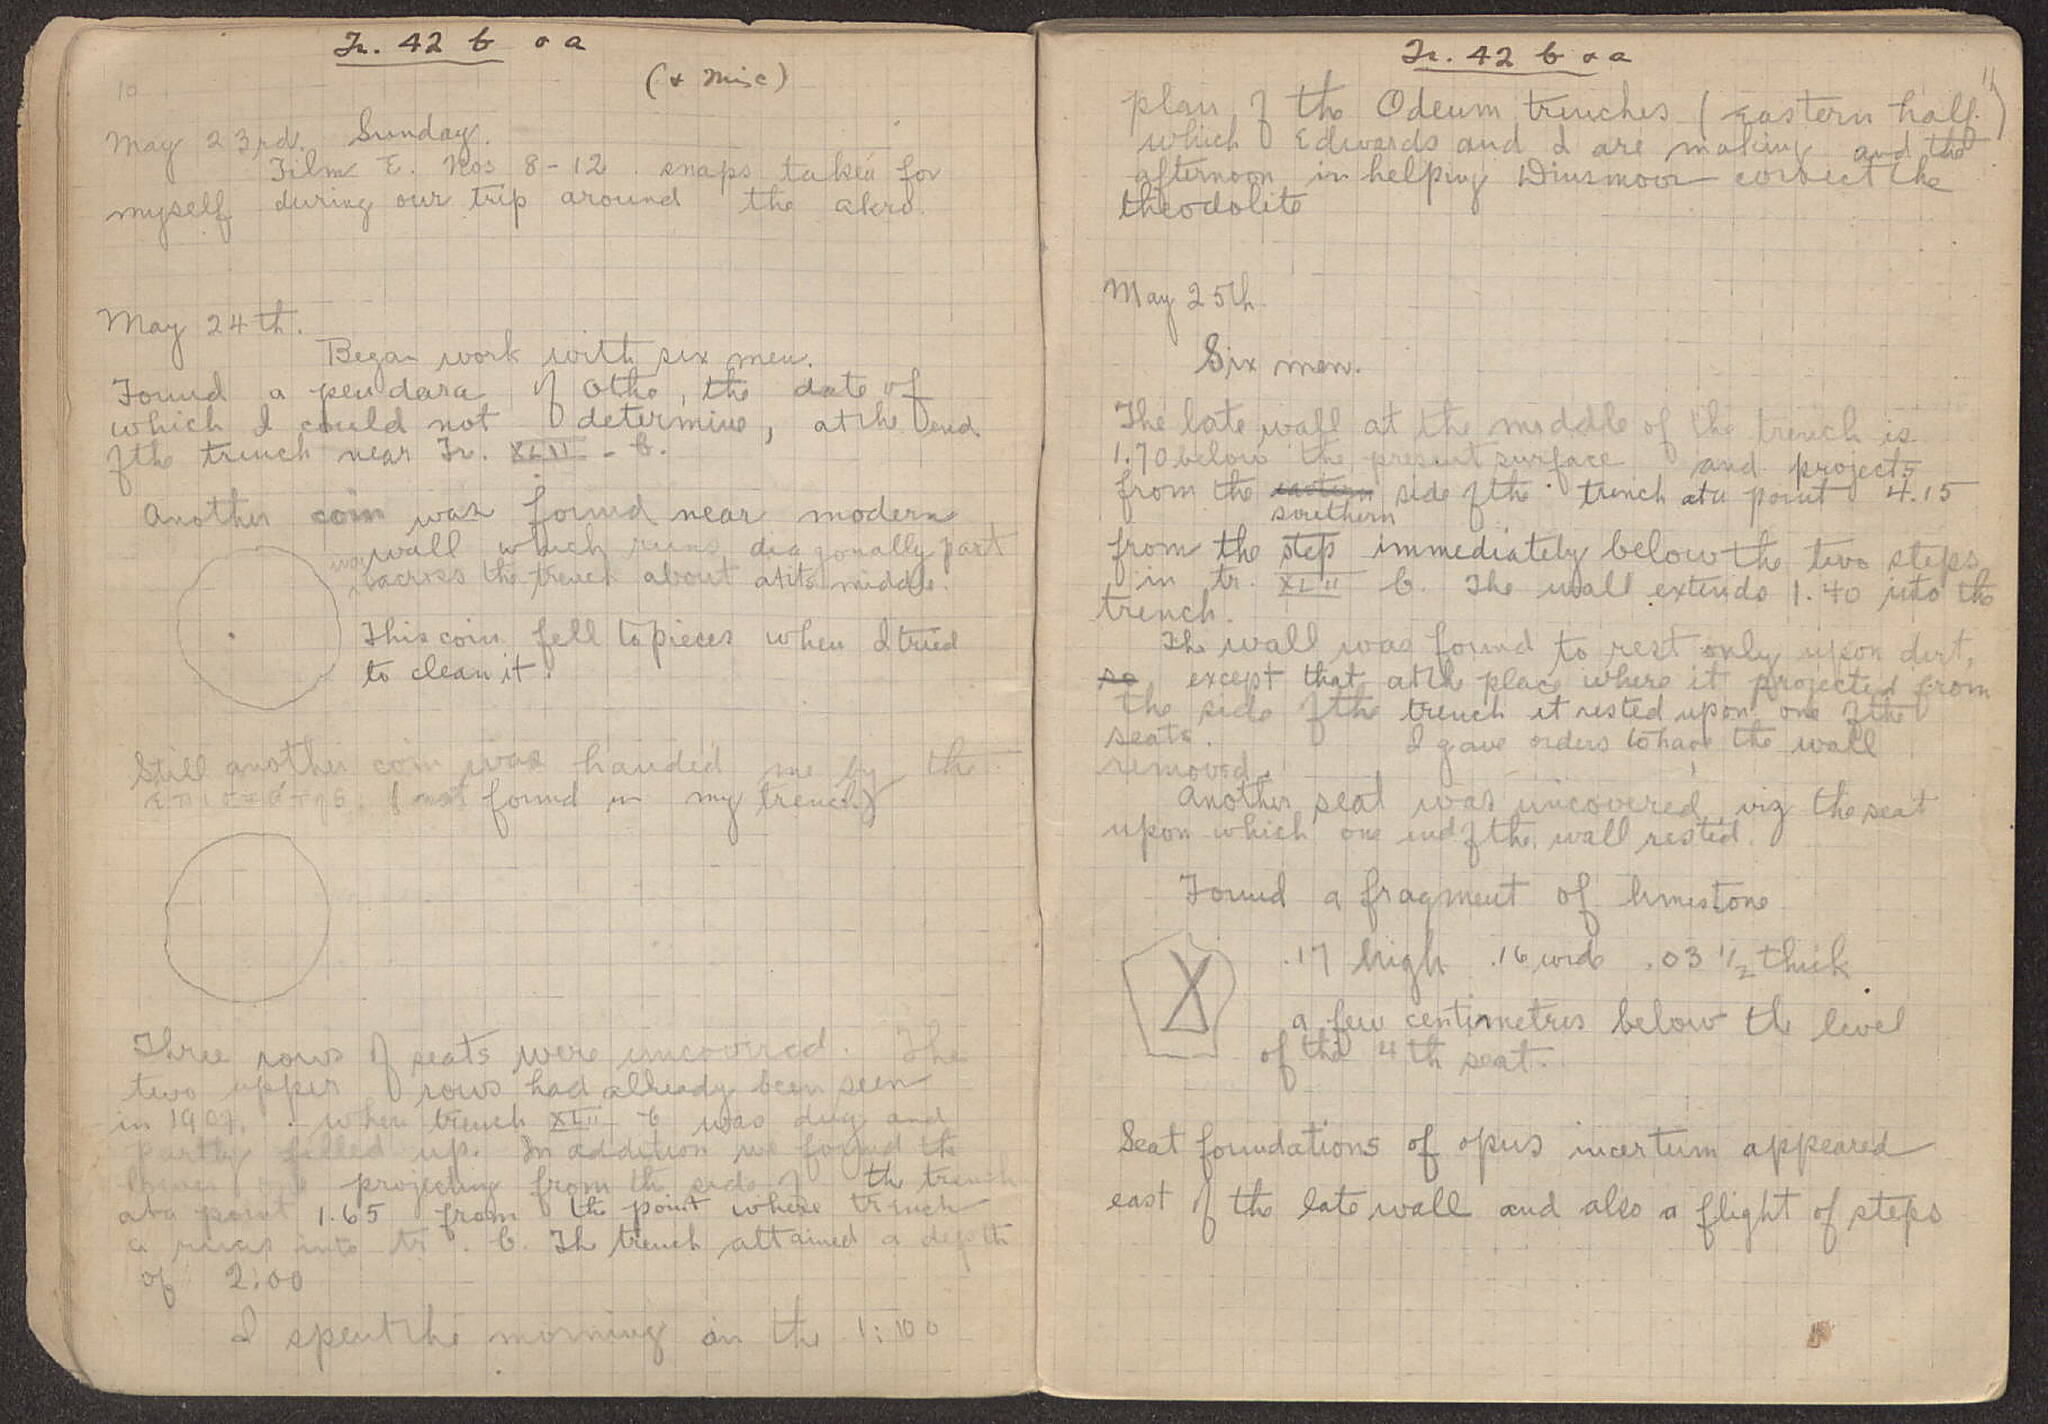 Tr. 42 b & a
(& Misc)
10
May 23rd. Sunday.
Film E. Nos 8-12 snaps taken for
myself during our trip around the akro.
May 24th.
Began work with six men.
Found a pendara of Otho, the date of
which I could not determine, at the end
of the trench near Tr. XLII - b.
Another coin was found near modern
wall which runs diagonally part
way across the trench about at its middle.
This coin fell to pieces when I tried
to clean it.
Still another coin was handed me by the
(not found in my trench)
Three rows of seats were uncovered. The
two upper rows had already been seen
in 1907. when trench XLII b was dug and
partly filled up. In addition we found the
lower one projecting from the side of the trench
at a point 1.65 from the point where trench
a runs into tr. b. The trench attained a depth
of 2.00
I spent the morning on the 1:100
Tr. 42 b & a
11
plan of the Odeum trenches (Eastern half)
which Edwards and I are making and the
afternoon in helping Dinsmoor correct the
theodolite
May 25th
Six men.
The late wall at the middle of the trench is
1.70 below the present surface and projects
from the eastern side of the trench at a point 4.15
southern
from the step immediately below the two steps
in tr. XLII b. The wall extends 1.40 into the
trench.
The wall was found to rest only upon dirt,
so except that at the place where it projected from
the side of the trench it rested upon one of the
seats. I gave orders to have the wall
removed.
Another seat was uncovered, viz the seat
upon which one end of the wall rested.
Found a fragment of limestone
.17 high .16 wide .03 1/2 thick
a few centimetres below the level
of the 4th seat.
Seat foundations of opus incertum appeared
east of the late wall and also a flight of steps